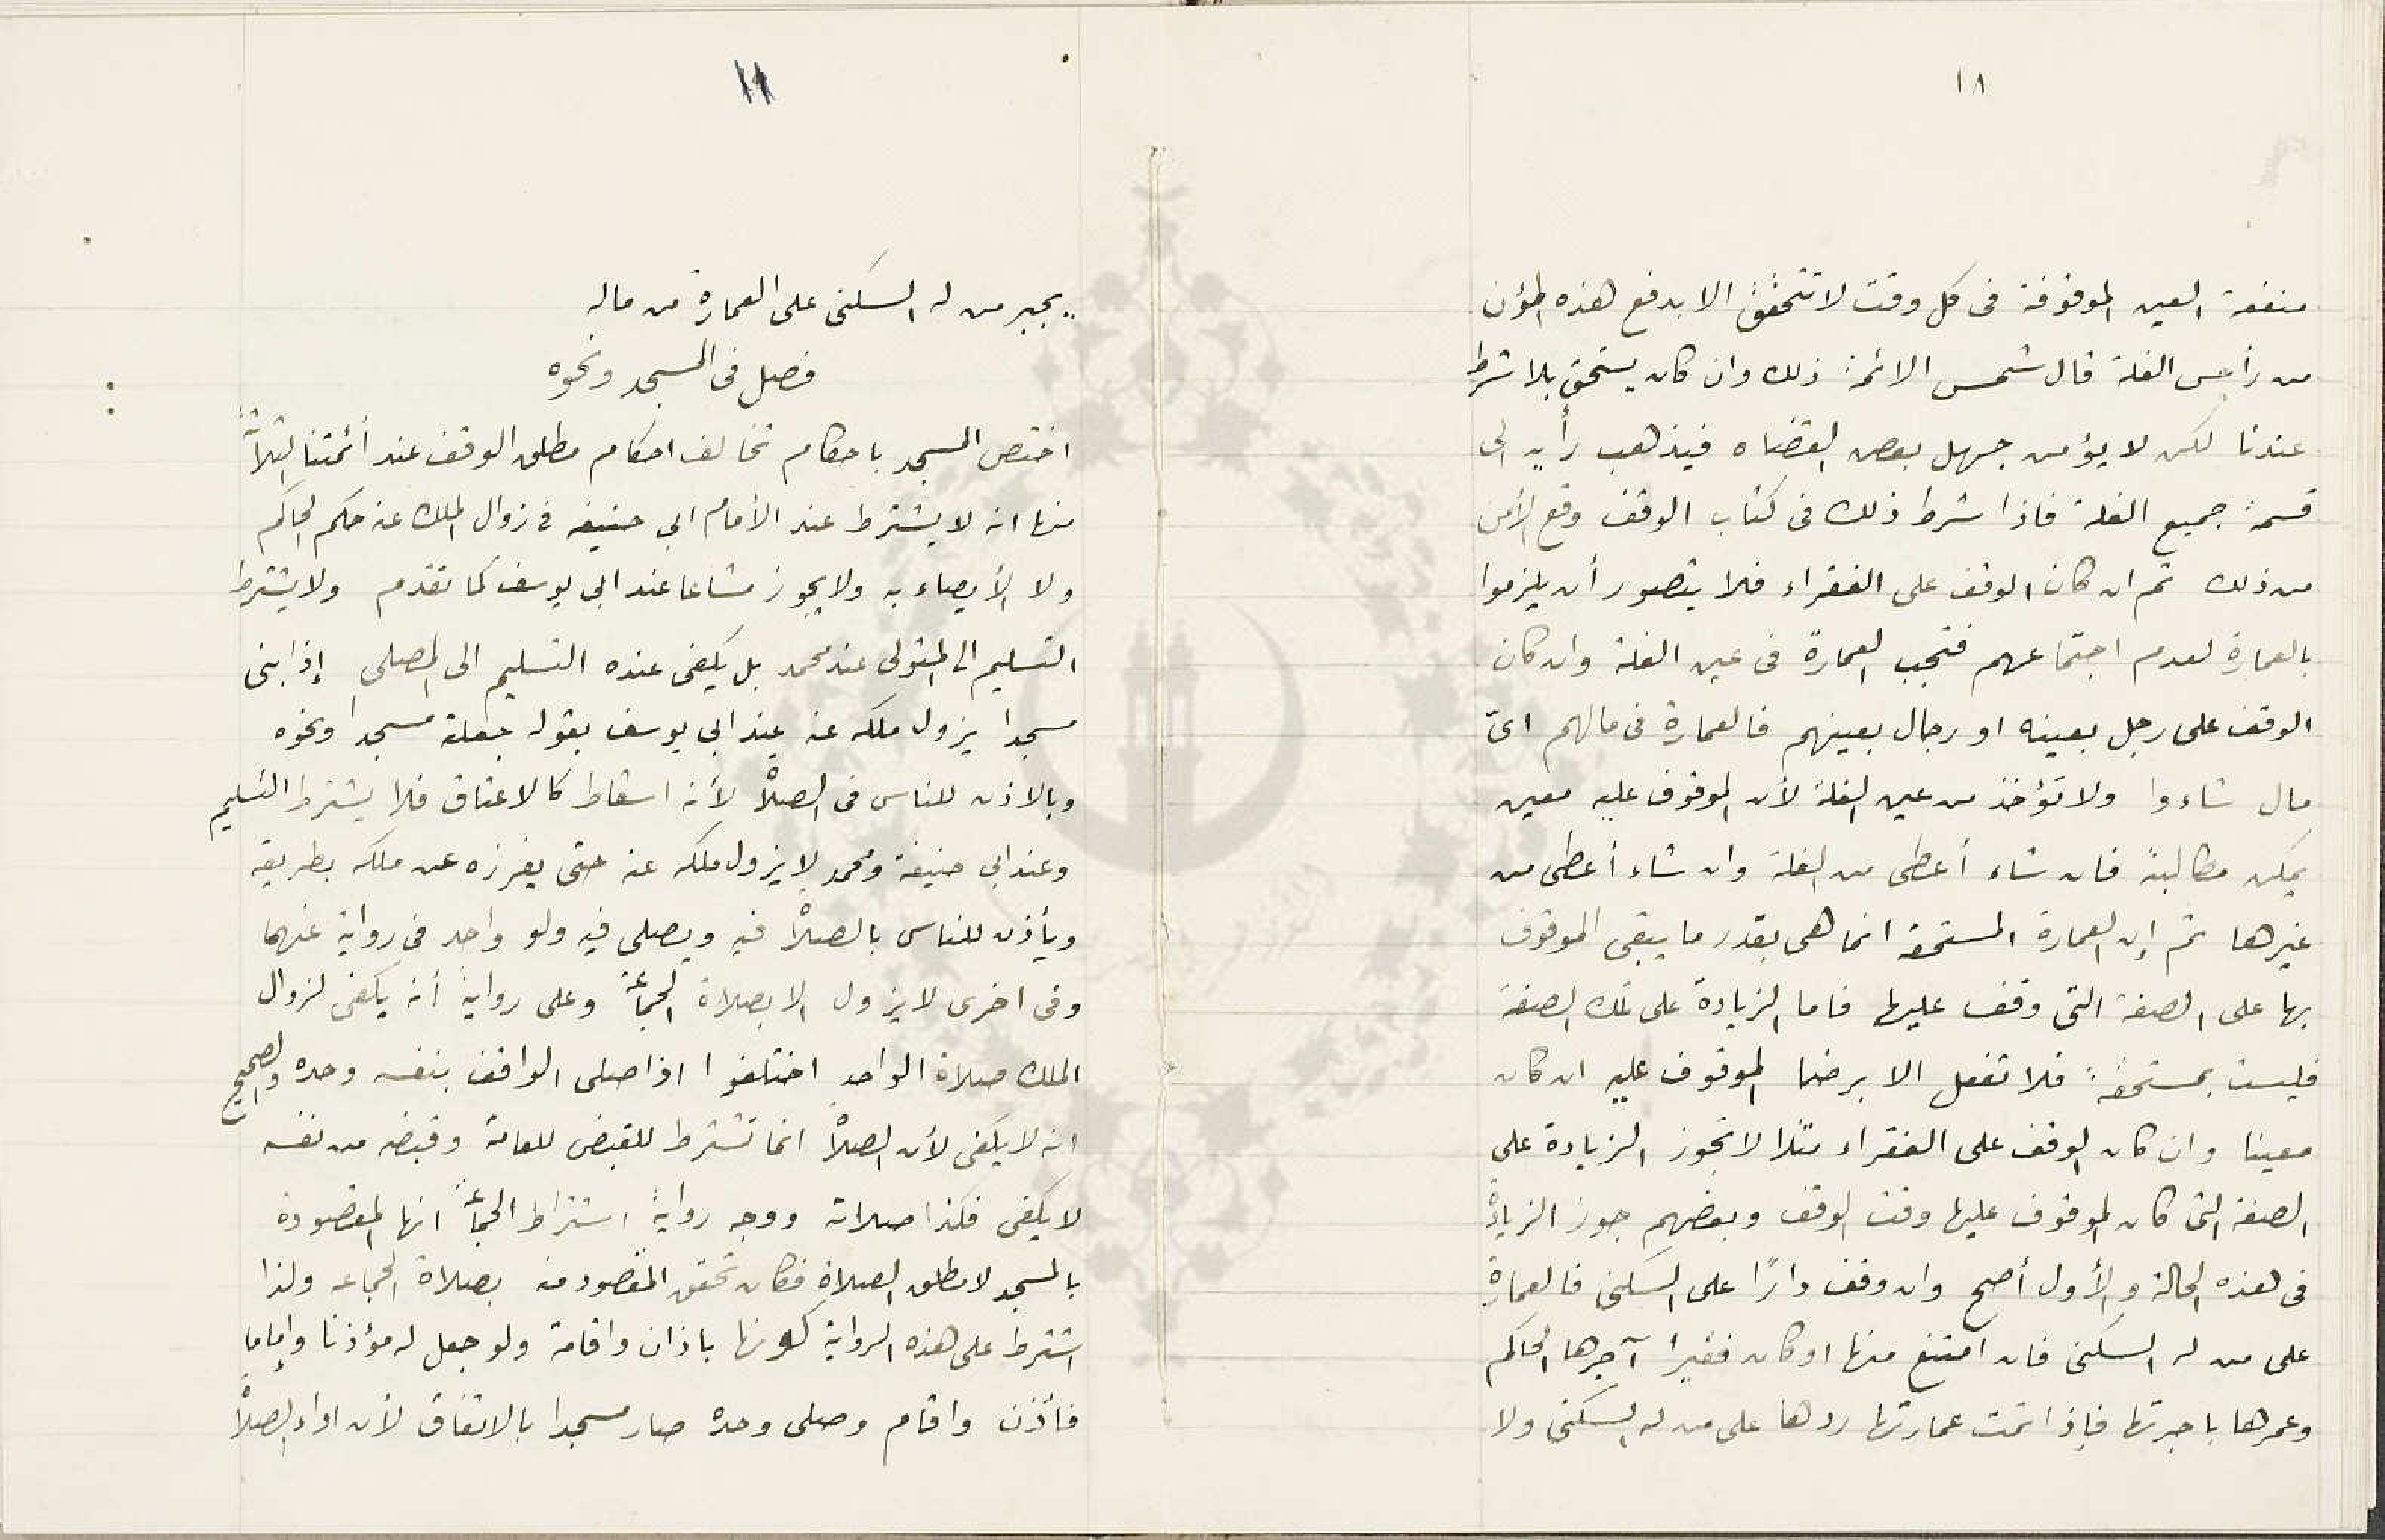 ١٨
منفعة العين الموقوفة فى كل وقت لا تتحقق الا بدفع هذه المؤن
من رأس الغلة قال شمس الائمة ذلك وان كان يستحق بلا شرط
عندنا لكن لا يؤمن جهل بعض القضاه فيذهب رأيه الى
قسمة جميع الغلة فاذا شرط ذلك فى كتاب الوقف وقع الأمن
من ذلك ثم ان كان الوقف على الفقراء فلا يتصور أن يلزموا
بالعمارة لعدم اجتماعهم فتجب العمارة فى عين الغلة وان كان
الوقف على رجل بعينه او رجال بعينهم فالعمارة فى مالهم اىّ
مال شاءوا ولا تؤخذ من عين الغلة لأن الموقوف عليه معين
يمكن مطالبته فان شاء أعطى من الغلة وان شاء أعطى من
غيرها ثم إن العمارة المستحقة انما هى بقدر ما يبقى الموقوف
بها على الصفة التى وقف عليها فاما الزيادة على تلك الصفة
فليست بمستحقة فلا تفعل الا برضا الموقوف عليه ان كان
معينا وان كان الوقف على الفقراء مثلا لا تجوز الزيادة على
الصفة التى كان الموقوف عليها وقت الوقف وبعضهم جوز الزيادة
فى هذه الحالة والأول أصح وان وقف دارًا على السكنى فالعمارة
على من له السكنى فان امتنع منها او كان فقيرا آجرها الحاكم
وعمرها باجرتها فإذا تمت عمارتها ردها على من له السكنى ولا
يجبر من له السكنى على العمارة من ماله
فصل فى المسجد ونحوه
اختص المسجد باحكام تخالف احكام مطلق الوقف عند أئمتنا الثلاثة
منها انه لا يشترط عند الأمام ابى حنيفه فى زوال الملك عنه حكم الحاكم
ولا الأيصاء به ولا يجوز مشاعا عند ابى يوسف كما تقدم ولا يشترط
التسليم الى المتولى عند محمد بل يكفى عنده التسليم الى المصلى إذا بنى
مسجدا يزول ملكه عنه عند ابى يوسف بقوله جعلته مسجدا ونحوه
وبالاذن للناس فى الصلاة لأنه اسقاط كالاعتاق فلا يشترط التسليم
وعند ابى حنيفة ومحمد لا يزول ملكه عنه حتى يفرزه عن ملكه بطريقه
ويأذن للناس بالصلاة فيه ويصلى فيه ولو واحد فى رواية عنهما
وفى اخرى لا يزول الا بصلاة الجماعة وعلى رواية أنه يكفى لزوال
الملك صلاة الواحد اختلفوا اذا صلى الواقف بنفسه وحده والصحيح
انه لا يكفى لأن الصلاة انما تشترط للقبض للعامة وقبضه من نفسه
لا يكفى فكذا صلاته ووجه رواية اشتراط الجماعة انها المقصودة
بالمسجد لا مطلق الصلاة فكان تحقق المقصود منه بصلاة الجماعه ولذا
اشترط على هذه الرواية كونها باذان واقامة ولو جعل له مؤذنا وإماما
فأذن واقام وصلى وحده صار مسجدا بالاتفاق لأن اداء الصلاة